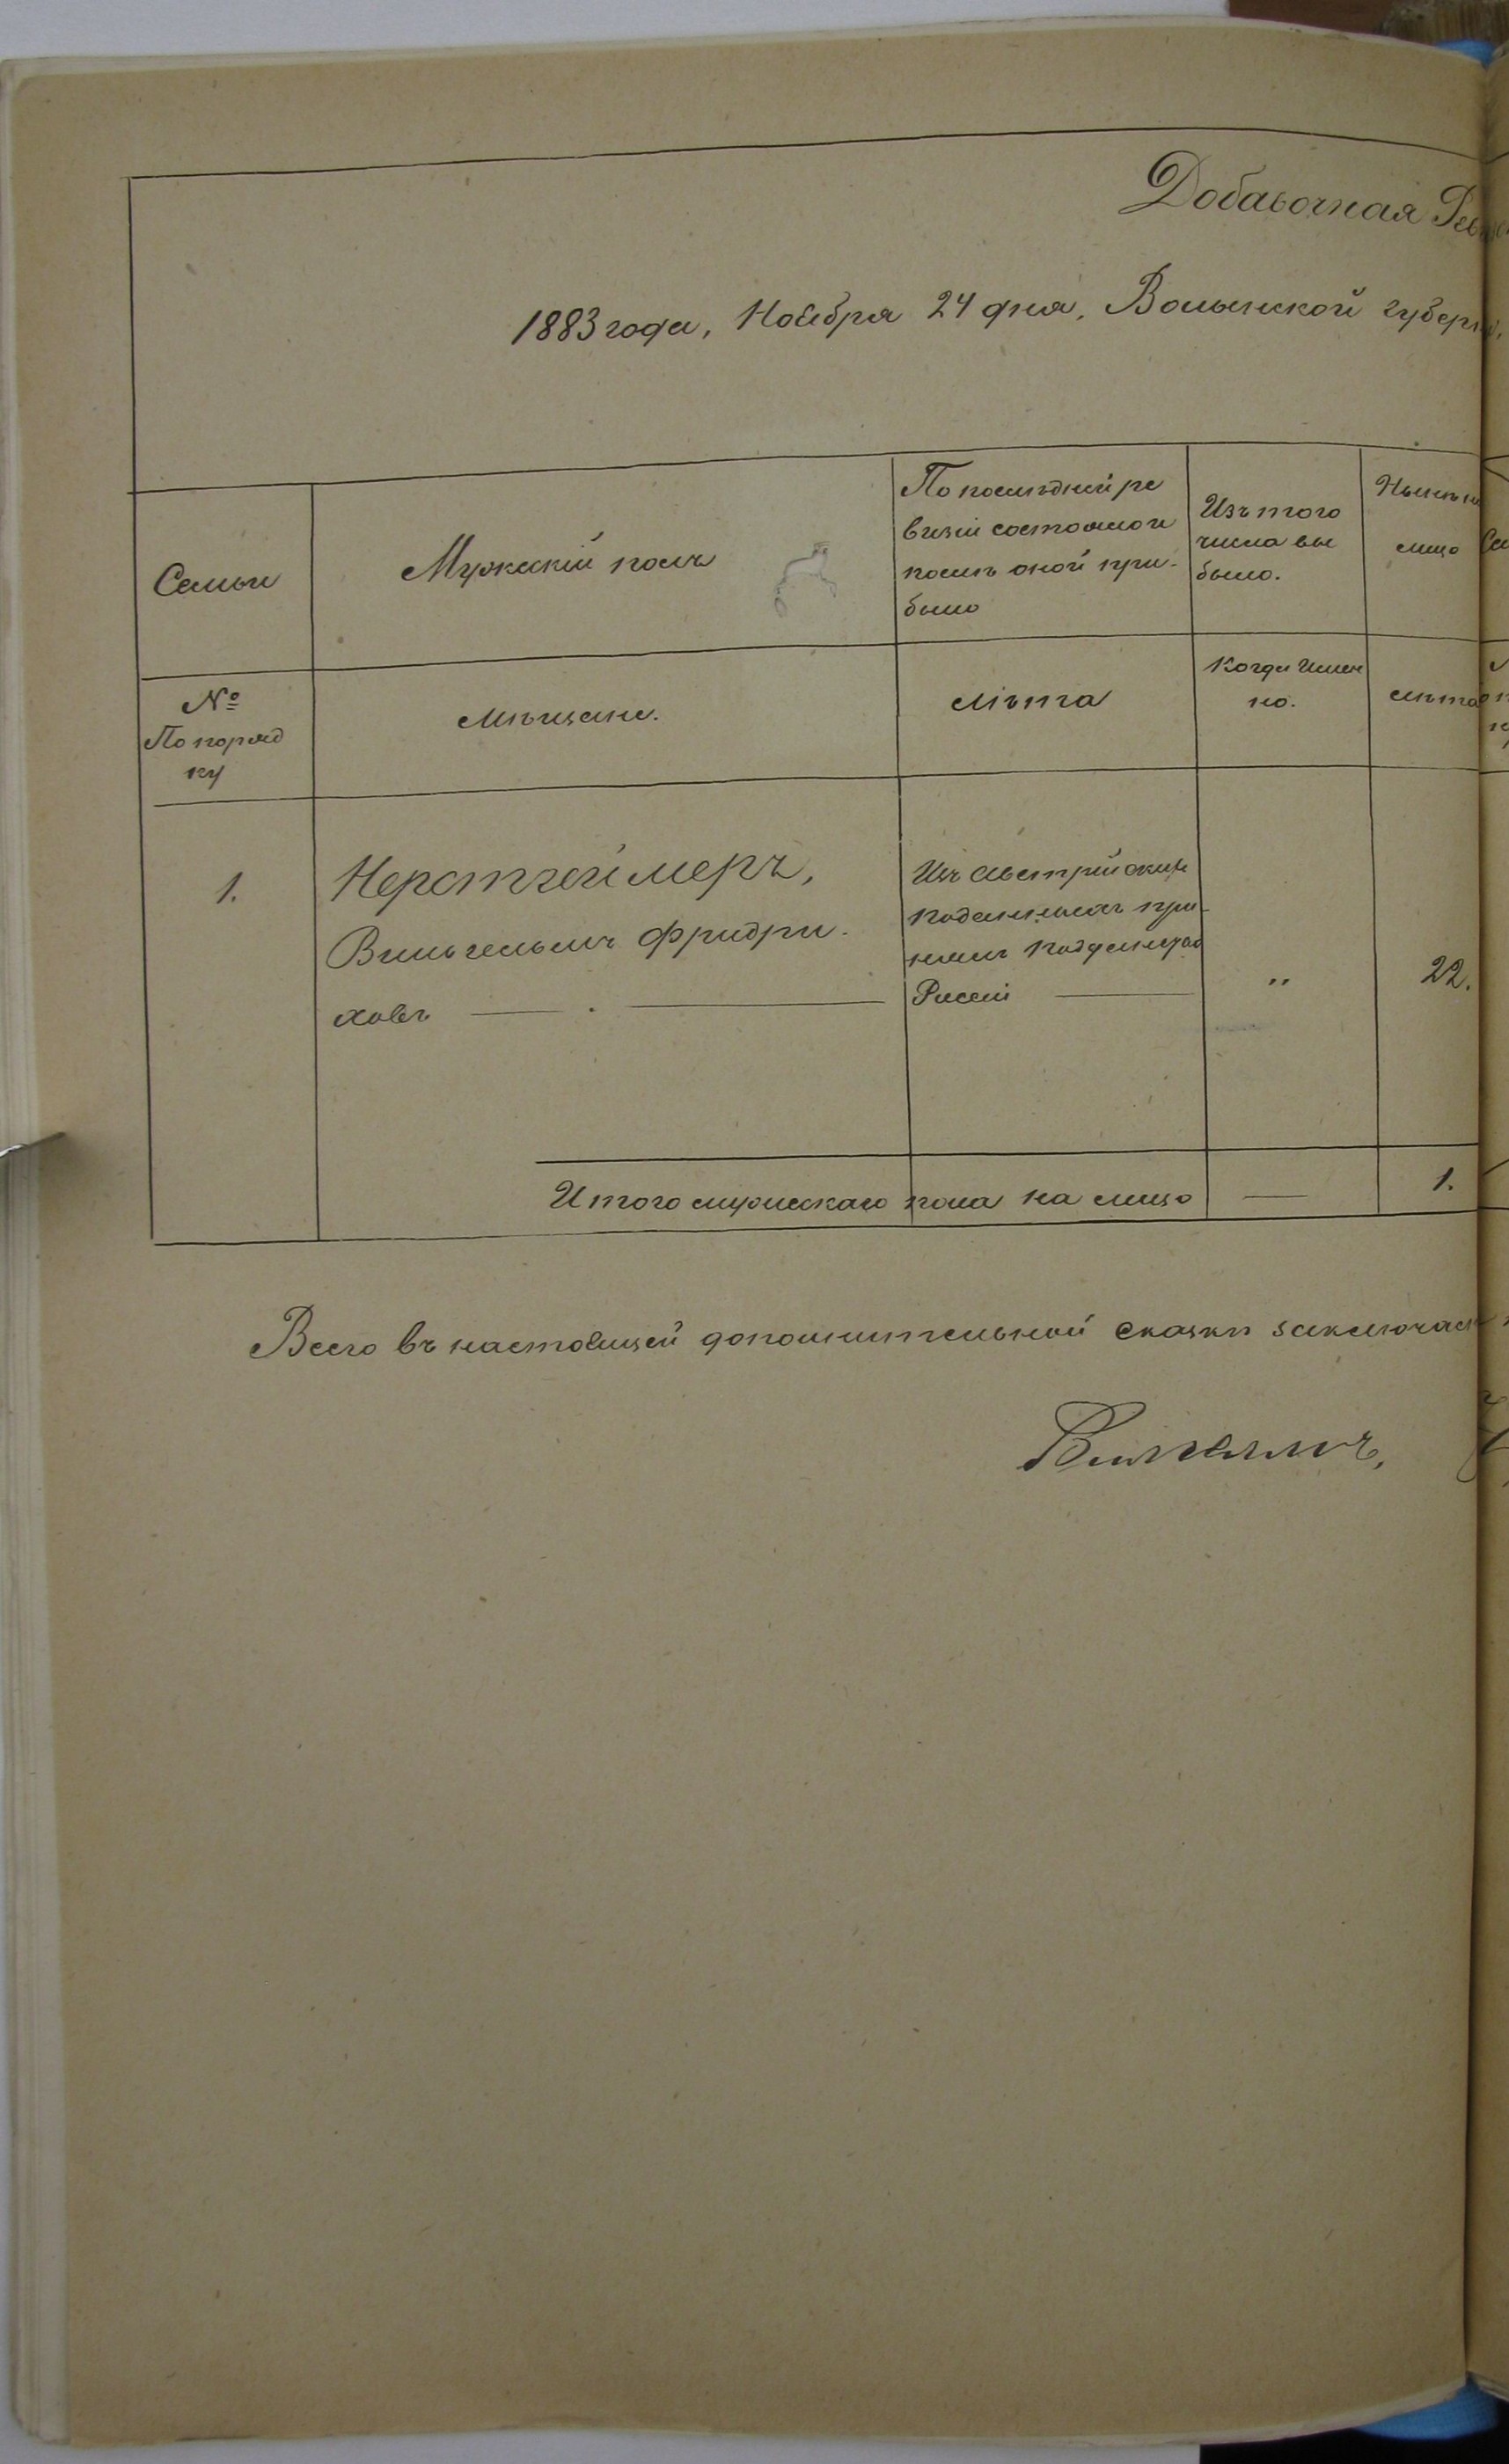 Добавочная Рев
1883 года, Ноября 24 дня, Волынской губерніи,
Семьи
Мужескій полъ
По послѣдней ре
визіи состояло и
послѣ оной при-
было
Изъ того
числа вы
было.
Нынѣ на
лицо
№
По поряд
ку
Мѣщане.
Лѣта
Когда имен
но.
Лѣта
1.
Нерстгеймеръ,
Вильгельмъ Фридри-
ховъ
Изъ Австрійскихъ
подданныхъ при-
нялъ подданство
Россіи
"
22.
Итого мужескаго пола на лицо
1.
Всего въ настоящей дополнительной сказкѣ заключается
Вильгельмъ,